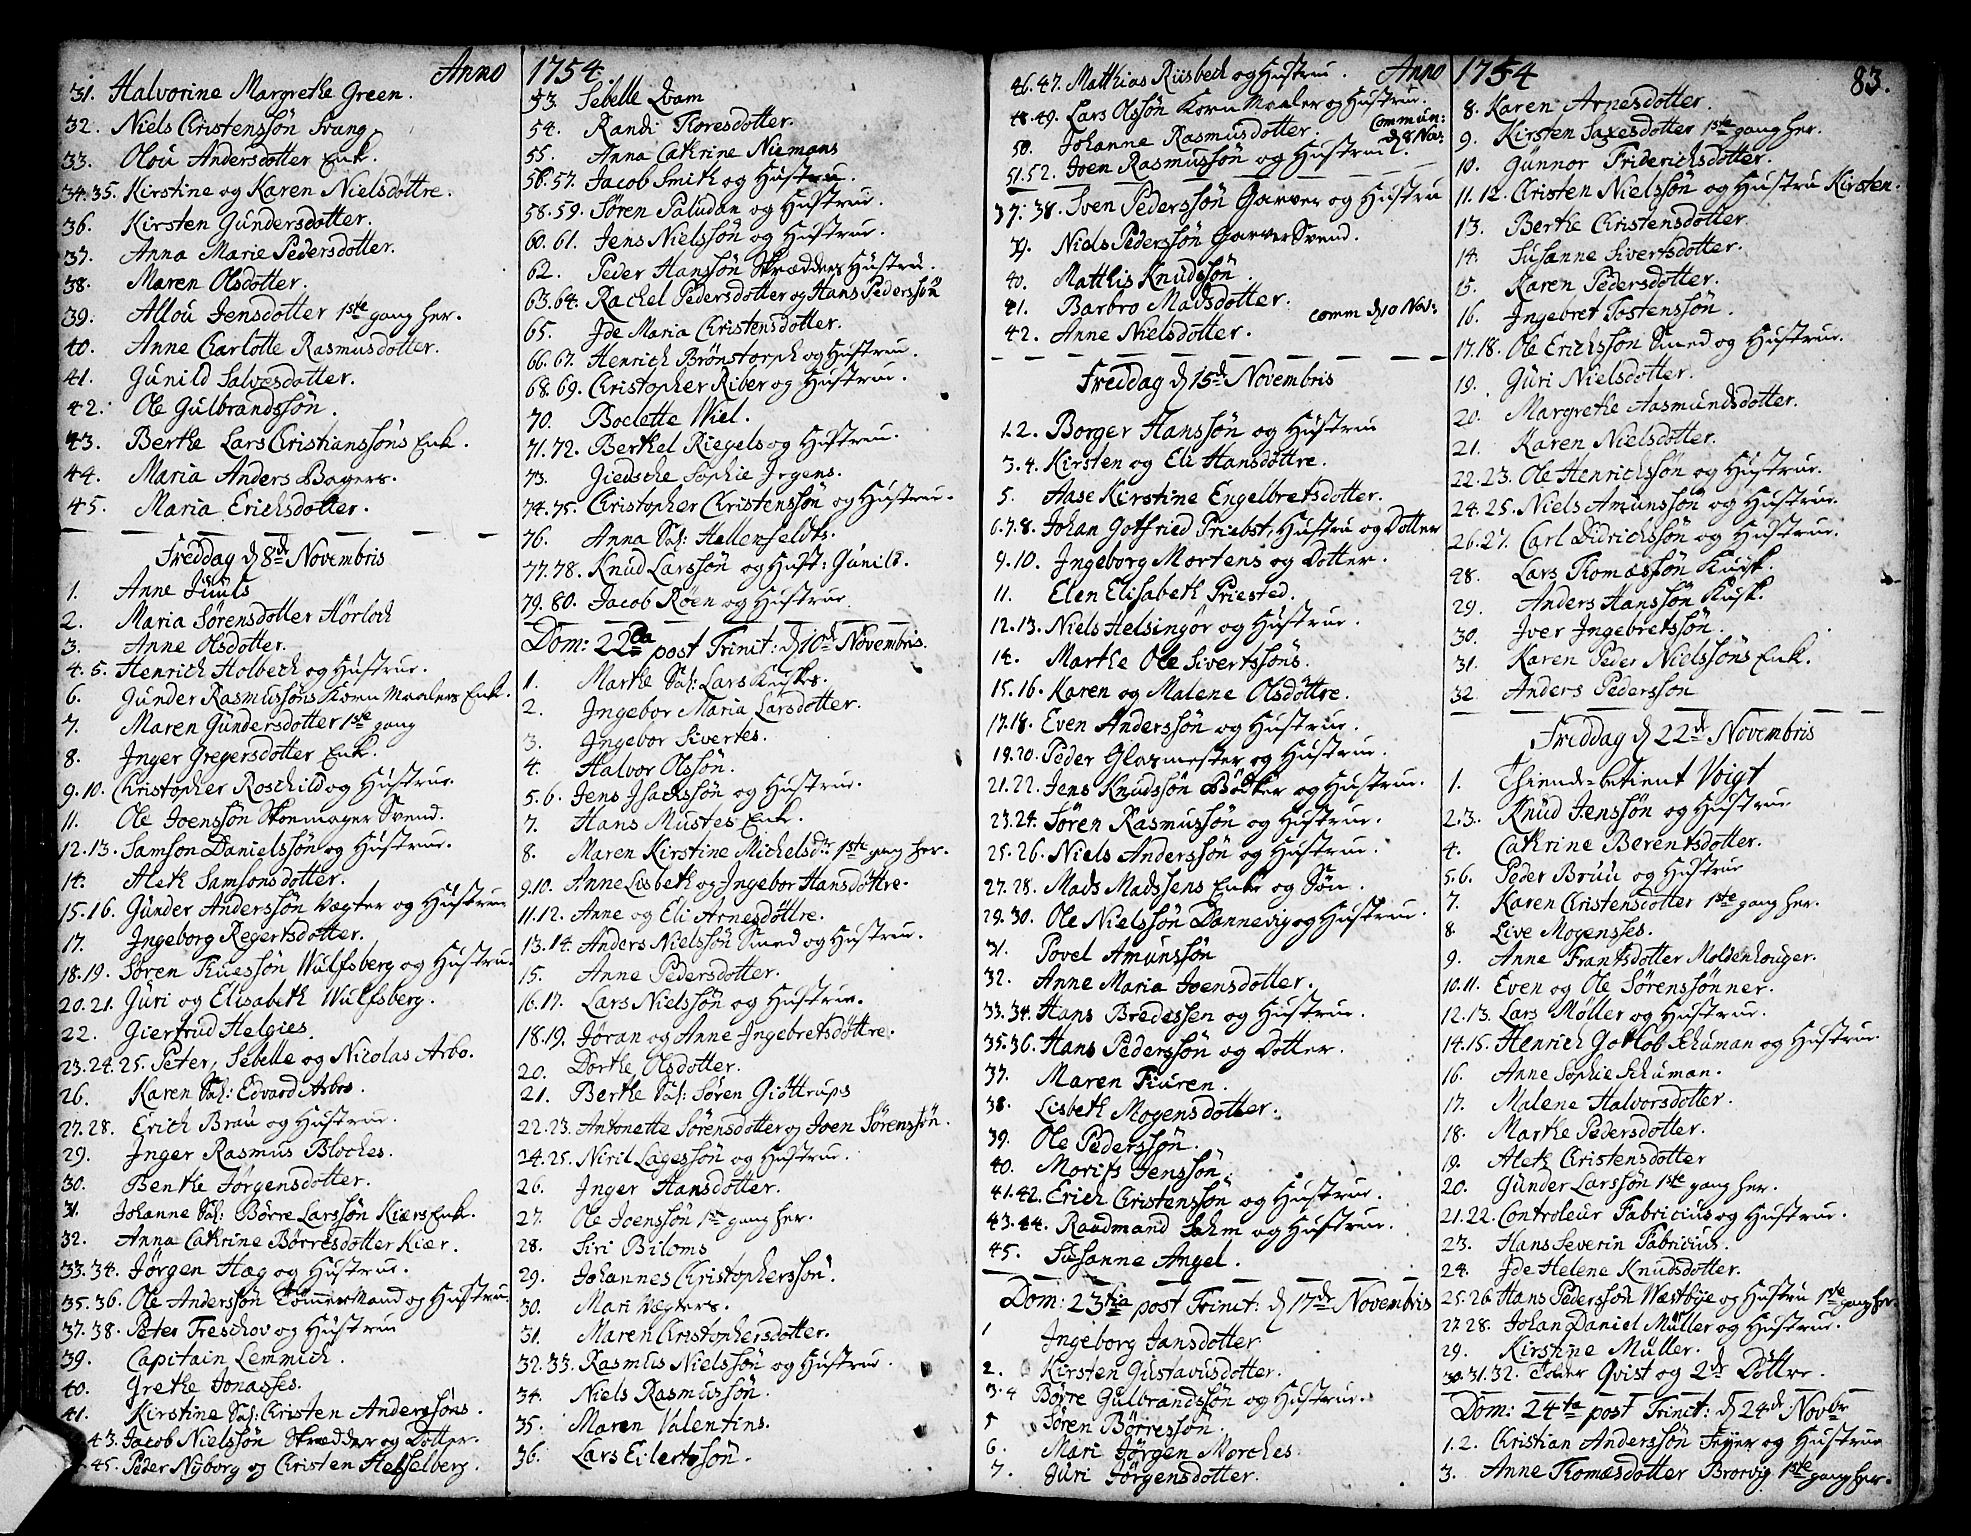 Anno 1754
31. Halvorine Margrethe Green.
32. Niels Christenssön Svang
33. Olou Andersdotter Enk.
34.35. Kirstine og Karen Nielsdöttre.
36. Kirsten Gundersdotter.
37. Anna Marie Pedersdotter.
38. Maren Olsdotter.
39. Allou Jensdotter 1ste gang her.
40. Anne Charlotte Rasmusdotter.
41. Gunild Salvesdotter.
42. Ole Gulbrandssön.
43. Berthe Lars Christianssöns Enk.
44. Maria Anders Bagers.
45. Maria Erichsdotter.
Freddag d 8de Novembris
1. Anne Juuls
2. Maria Sörensdotter Hörloch
3. Anne Olsdotter.
4.5. Henrich Holbech og Hustrue.
6. Gunder Rasmussöns Korn Maalers Enk.
7. Maren Gundersdotter 1ste gang
8. Inger Gregersdotter Enk.
9.10. Christopher Roschild og Hustrue.
11. Ole Joenssön Skoemager Svend.
12.13. Samson Danielssön og Hustrue.
14. Aleth Samsonsdotter.
15.16. Gunder Anderssön Vægter og Hustrue
17. Ingeborg Regertsdotter.
18.19. Sören Thuessön Wulfsberg og Hustru.
20.21. Juri og Elisabeth Wulfsberg.
22. Giertrud Helgies.
23.24.25. Peter, Sebelle og Nicolas Arbo.
26. Karen Sal: Edvard Arbos.
27.28. Erich Brau og Hustrue.
29. Inger Rasmus Bloches.
30. Benthe Jörgensdotter.
31. Johanne Sal: Börre Larssön Kiærs Enk.
32. Anna Cathrine Börresdotter Kiær.
33.34. Jörgen Hæg og Hustrue.
35.36. Ole Anderssön Tömmer Mand og Hustru.
37.38. Peter Treschov og Hustrue
39. Capitain Lemmich.
40. Grethe Jonasses.
41. Kirstine Sal: Christen Anderssöns.
43. Jacob Nielssön Skrædder og Dotter.
45. Peder Nyborg og Christen Hesselberg.
53. Sebelle Qvam
54. Randi Thoresdotter.
55. Anna Cathrine Niemans
56.57. Jacob Smith og Hustrue.
58.59. Sören Paludan og Hustrue.
60.61. Jens Nielssön og Hustrue.
62. Peder Hanssön Skrædders Hustru.
63.64. Rachel Pedersdotter og Hans Pederssön
65. Ide Maria Christensdotter.
66.67. Henrich Brönstorph og Hustrue.
68.69. Christopher Riber og Hustrue.
70. Boelette Wiel.
71.72. Berthel Riegels og Hustrue.
73. Giedsche Sophie Irgens.
74.75. Christopher Christenssön og Hustrue.
76. Anna Sal: Hellenfeldts.
77.78. Knud Larssön og Hust: Gunild.
79.80. Jacob Röen og Hustrue
Dom: 22da post Trinit: d 10de Novembris.
1. Marthe Sal: Lars Kusks.
2. Ingebor Maria Larsdotter.
3. Ingebor Siverts.
4. Halvor Olssön.
5.6. Jens Isachssön og Hustrue.
7. Hans Mustes Enk.
8. Maren Kirstine Michelsdtr 1ste gang her.
9.10. Anne Lisbeth og Ingebor Hansdöttre.
11.12. Anne og Eli Arnesdöttre.
13.14. Anders Nielssön Smed og Hustrue.
15. Anne Pedersdotter.
16.17. Lars Nielssön og Hustrue.
18.19. Jöran og Anne Ingebretsdöttre.
20. Dorthe Olsdotter.
21. Berthe Sal: Sören Giöttrups
22.23. Antonette Sörensdotter og Joen Sörenssön.
24.25. Niril Lagessön og Hustrue.
26. Inger Hansdotter.
27. Ole Joenssön 1ste gang her.
28. Siri Biloms
29. Johannes Christopherssön.
30. Mari Vægters.
31. Maren Christophersdotter.
32.33. Rasmus Nielssön og Hustrue.
34. Niels Rasmussön.
35. Maren Valentins.
36. Lars Eilertssön.
Anno 1754 83.
46.47. Matthias Riisbech og Hustrue.
48.49. Lars Olssön Korn Maaler og Hustrue.
50. Johanne Rasmusdotter. Commun:
51.52. Joen Rasmussön og Hustrue. d 8 Nov:
37.38. Sven Pederssön Garver og Hustru
39. Niels Pederssön Garver Svend.
40. Matthis Knudssön.
41. Barbro Madsdotter.
42. Anne Nielsdotter. comm d 10 Nov:
Freddag d 15de Novembris
1.2. Borger Hanssön og Hustrue
3.4. Kirsten og Eli Hansdöttre.
5. Aase Kirstine Engelbretsdotter.
6.7.8. Johan Gotfried Priebst, Hustru og Dotter
9.10. Ingeborg Mortens og Dotter.
11. Elen Elisabeth Priested.
12.13. Niels Helsingör og Hustrue.
14. Marthe Ole Sivertssöns.
15.16. Karen og Malene Olsdöttre.
17.18. Even Anderssön og Hustrue.
19.20. Peder Glasmester og Hustrue.
21.22. Jens Knudssön Bödker og Hustrue.
23.24. Sören Rasmussön og Hustrue.
25.26. Niels Anderssön og Hustrue.
27.28. Mads Madssens Enke og Sön.
29.30. Ole Nielssön Dannevig og Hustrue.
31. Povel Amunssön
32. Anne Maria Joensdotter.
33.34. Hans Bredessen og Hustrue.
35.36. Hans Pederssön og Dotter.
37. Maren Fiuren.
38. Lisbeth Mogensdotter.
39. Ole Pederssön.
40. Morits Jenssön.
41.42. Erich Christenssön og Hustrue.
43.44. Raadmand Sahm og Hustrue.
45. Susanne Angel.
Dom: 23tia post Trinit: d 17de Novembris
1 Ingeborg Jansdotter
2. Kirsten Gustavusdotter.
3.4 Börre Gulbrandssön og Hustrue.
5 Sören Börressön.
6. Mari Jörgen Morches.
7. Juri Jörgensdotter.
8. Karen Arnesdotter.
9. Kirsten Saxesdotter 1ste gang her.
10. Gunnor Friderichsdotter.
11.12. Christen Nielssön og Hustru Kirsten.
13. Berthe Christensdotter
14. Susanne Sivertsdotter.
15. Karen Pedersdotter.
16. Ingebret Tostenssön.
17.18. Ole Erichssön Smed og Hustrue.
19. Guri Nielsdotter.
20. Margrethe Aasmundsdotter.
21. Karen Nielsdotter.
22.23. Ole Henrichssön og Hustrue.
24.25. Niels Amunssön og Hustrue.
26.27. Carl Didrichssön og Hustrue.
28. Lars Thomæssön Kusk.
29. Anders Hanssön Kusk.
30. Iver Ingebretssön.
31. Karen Peder Nielssöns Enk.
32 Anders Pederssön
Freddag d 22de Novembris
1. Thiende-betient Voigt
2.3. Knud Jenssön og Hustrue
4. Cathrine Berentsdotter.
5.6. Peder Bruu og Hustrue
7. Karen Christensdotter 1ste gang her.
8. Live Mogensses.
9. Anne Frantsdotter Moldenhouger.
10.11. Even og Ole Sörenssönner.
12.13. Lars Möller og Hustrue.
14.15. Henrich Gotlob Schuman og Hustrue.
16. Anne Sophie Schuman.
17. Malene Halvorsdotter.
18. Marthe Pedersdotter.
19. Aleth Christensdotter
20. Gunder Larssön 1ste gang her.
21.22. Controleur Fabricius og Hustrue.
23. Hans Severin Fabricius.
24. Ide Helene Knudsdotter.
25.26 Hans Pederssön Wæstbye og Hustru 1ste gang her.
27.28. Johan Daniel Müller og Hustrue.
29. Kirstine Müller.
30.31.32. Tolder Qvist og 2de Döttre.
Dom: 24ta post Trinit: d 24de Novbr
1.2. Christian Anderssön Feyer og Hustrue
3. Anne Thomæsdotter Brorvig 1ste gang her.